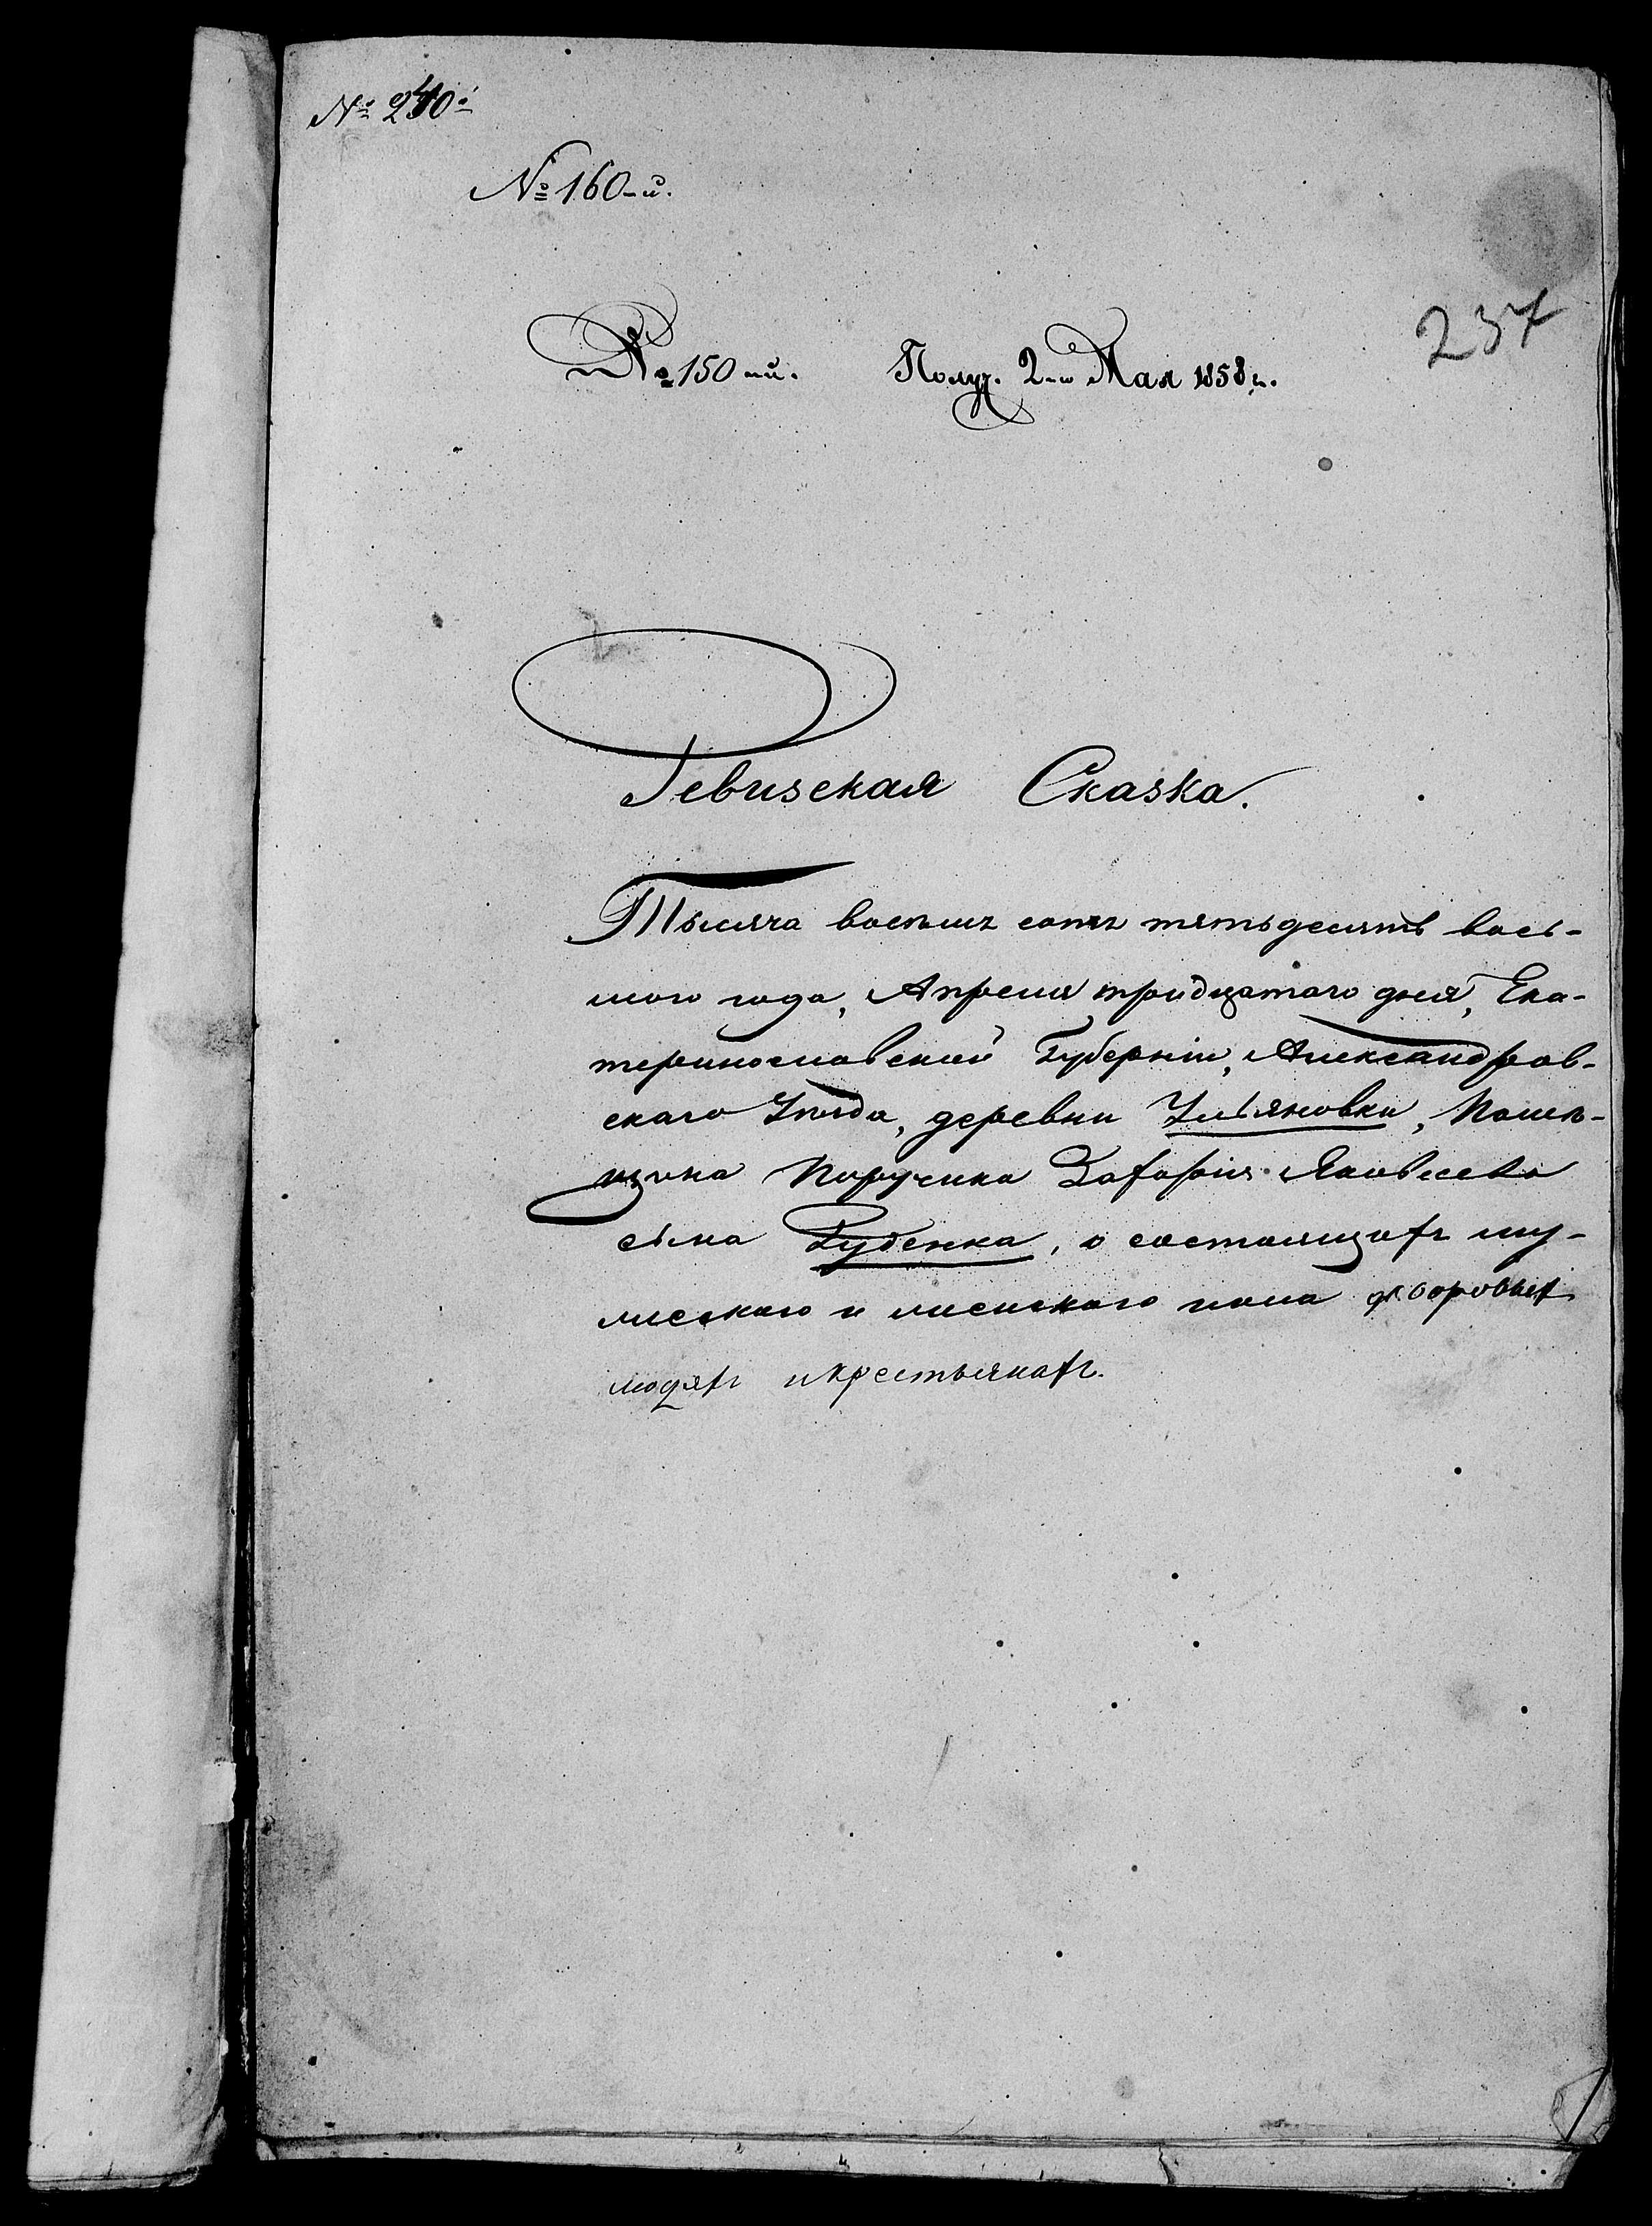 № 240й
№ 160-й.
237
№ 150-й. Получ. 2-го Мая 1858 г.
Ревизская Сказка.
Тысяча восемь сотъ пятьдесятъ вось-
мого года, Апреля тридцатаго дня, Ека-
теринославской Губерніи, Александров-
скаго Уѣзда, деревни Ульяновки, Помѣ-
щика Поручика Захарія Яковлева
сына Гуденка, о состоящихъ му-
жескаго и женскаго пола дворовых
людяхъ и крестьянахъ.